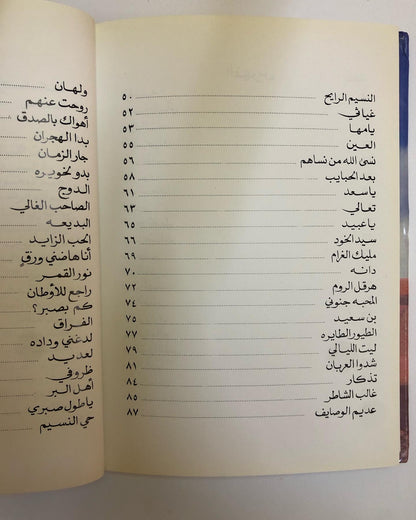 النسيم الرايح ٥٠
غيافي ٥٢
يامها ٥٣
العين ٥٥
نسى الله من نساهم ٥٦
بعد الحبايب ٥٨
ياسعد ٦١
تعالي ٦٣
ياعبيد ٦٥
سيد الخود ٦٦
مليك الغرام ٦٩
دانه ٧٠
هرقل الروم ٧٢
المحبه جنوني ٧٤
بن سعيد ٧٥
الطيور الطايره ٧٧
ليت الليالي ٧٩
شدوا العربان ٨١
تذكار ٨٤
غالب الشاطر ٨٥
عديم الوصايف ٨٧
ولهان
روحت عنهم
أهواك بالصدق
بدا الهجران
جار الزمان
بدو نخويره
الدوج
الصاحب الغالي
البديعه
الحب الزايد
أنا هاضني ورق
نور القمر
راجع للأوطان
كم بصبر؟
الفراق
لدغني وداده
لعديد
ظروفي
أهل البر
ياطول صبري
حي النسيم